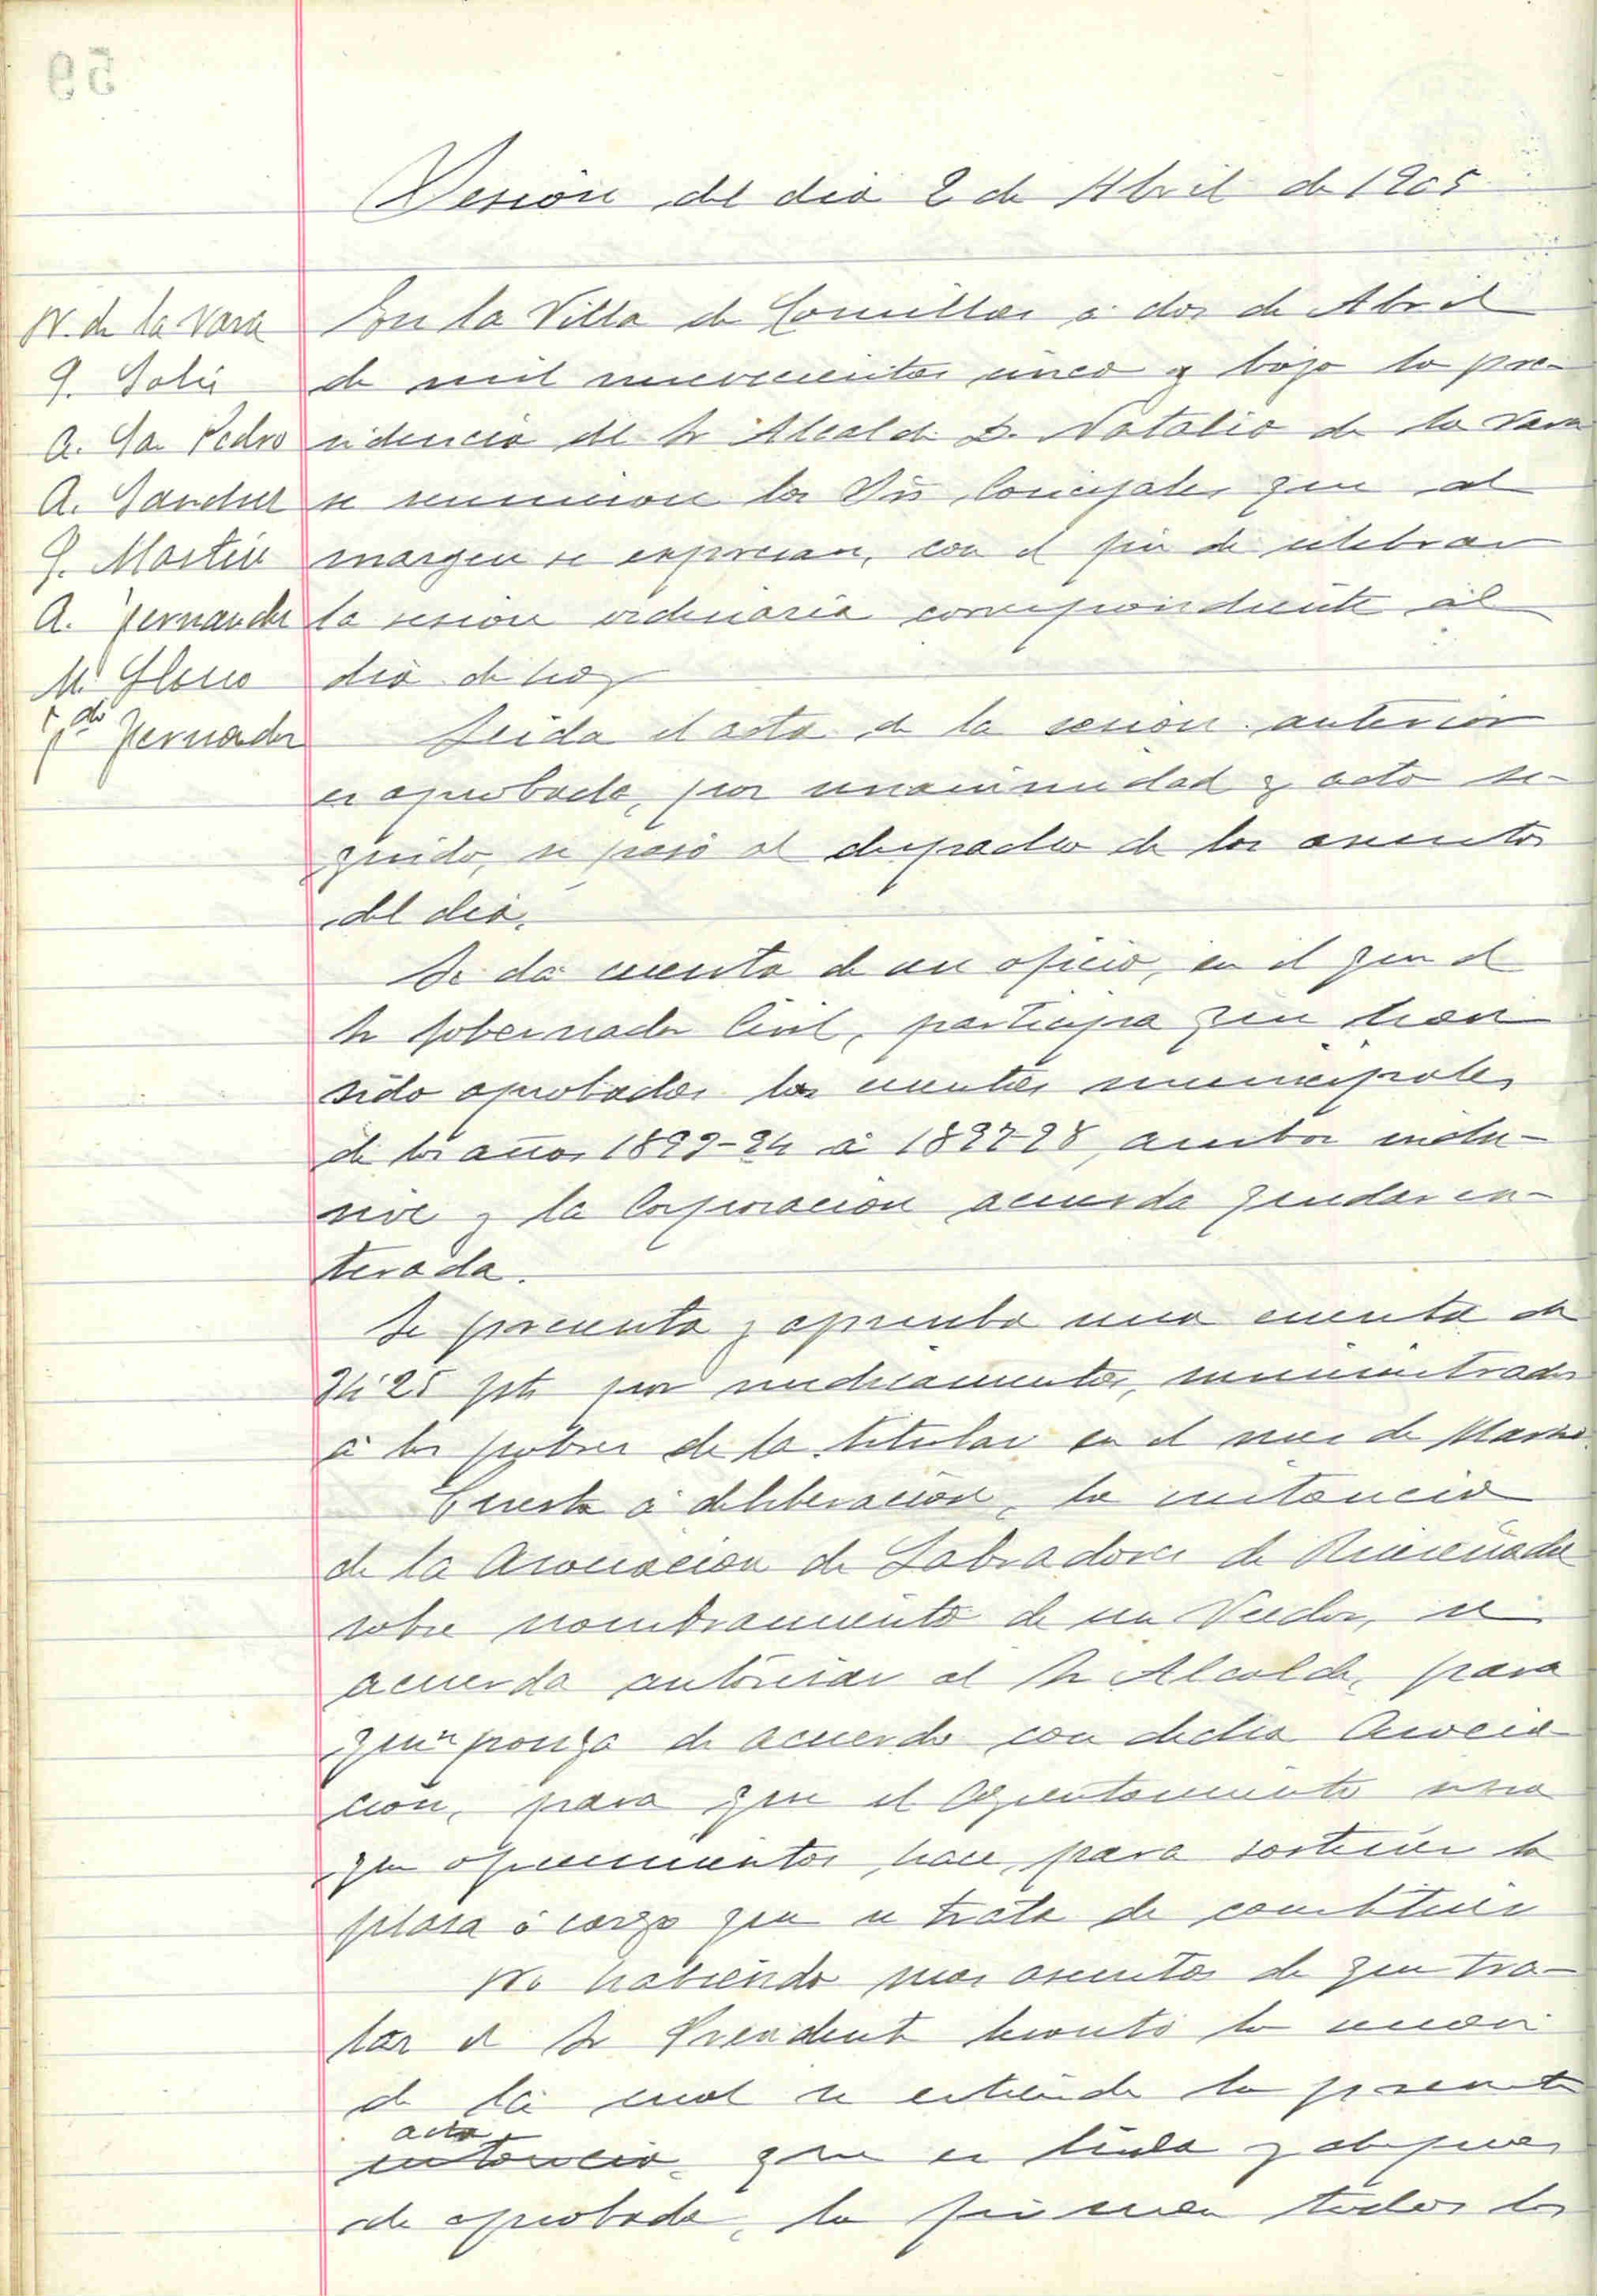 Sesión del dia 2 de Abril de 1905
N. de la Vara
G. Solis
A. Sn. Pedro
A. Sanchez
G. Martin
A. Fernandez
M. Llano
Fernandez
En la Villa de Comillas á dos de Abril
de mil novecientos cinco y bajo la pre-
sidencia del Sr Alcalde D. Natalio de la Vara
se reunieron los Srs Concejales que al
margen se expresan, con el fin de celebrar
la sesion ordinaria correspondiente al
dia de hoy
Leida el acta de la sesión anterior
es aprobada, por unanimidad y acto se-
guido, se pasó al despacho de los asuntos
del dia.
Se da cuenta de un oficio, en el que el
Sr Gobernador Civil, participa que han
sido aprobadas las cuentas municipales
de los años 1893-94 á 1897-98, ambos inclu-
sive y la Corporacion acuerda quedar en-
terada.
Se presenta y aprueba una cuenta de
34'25 pts por medicamentos, suministrados
á los pobres de la titular en el mes de Marzo.
Puesta á deliberacion, la instancia
de la Asociacion de Labradores de
sobre nombramiento de un Veedor, se
acuerda autorizar al Sr Alcalde, para
que se ponga de acuerdo con dicha Asocia-
cion, para que el Ayuntamiento vea
que ofrecimientos hace, para sostener la
plaza ó cargo que se trata de constituir
No habiendo mas asuntos de que tra-
tar el Sr Presidente levantó la sesion
de la cual se extiende la presente
acta
que es leida y despues
de aprobada, la firman todos los